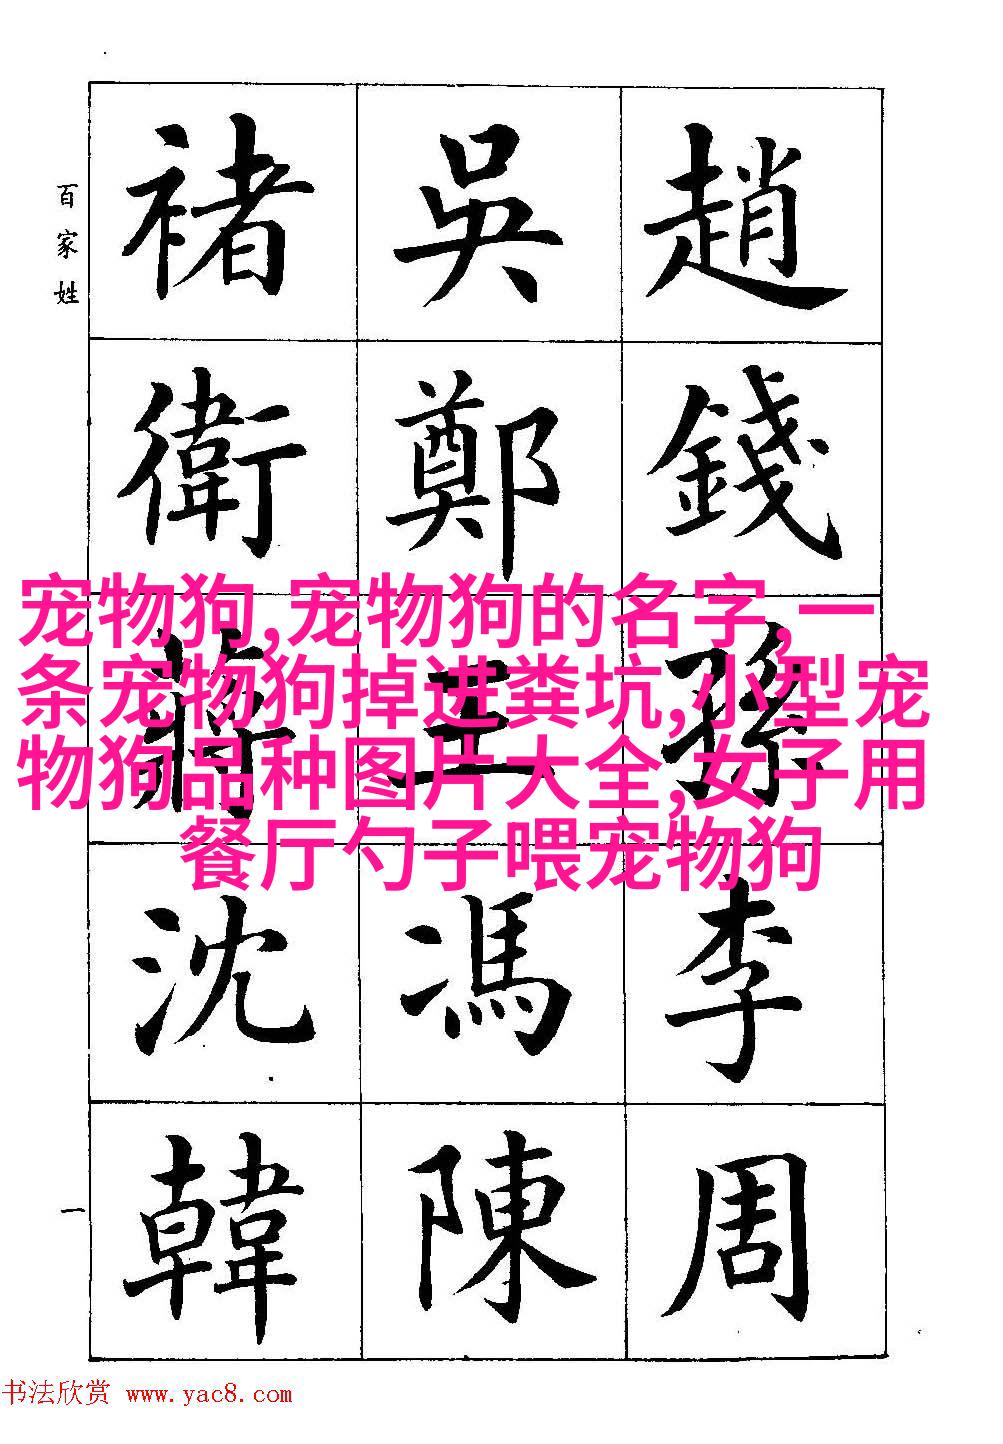 百家姓
趙錢孫李周
吳鄭王馮陳
褚衛蔣沈韓
一
宠物狗,宠物狗的名字,一
条宠物狗掉进粪坑,小型宠
物狗品种图片大全,女子用
餐厅勺子喂宠物狗
书法欣赏 www.yac8.com